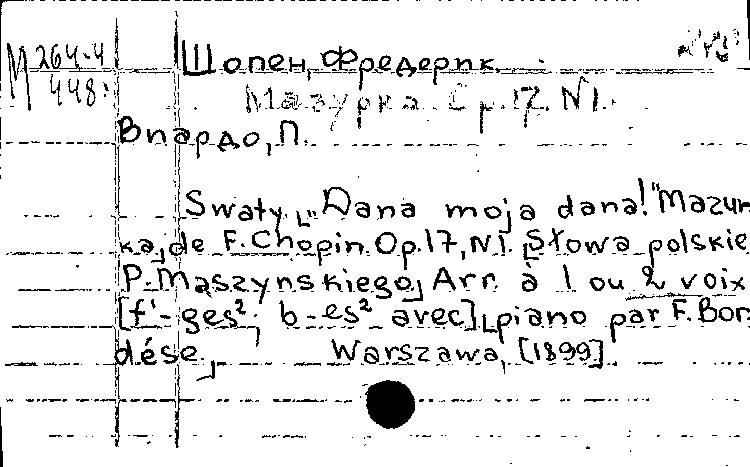 М 264-4
448
Шопен, Фредерик.
Мазурка. Ср.17. N1.
Виардо, П.
Swaty. „Dana moja dana!" Mazur-
ka, de F. Chopin. Op.17, N1. Słowa polskie
P. Maszynskiego, Arr. à 1 ou 2 voix
[f¹-ges²; b-es² avec] piano par F. Bor-
dése.
Warszawa, [1899].